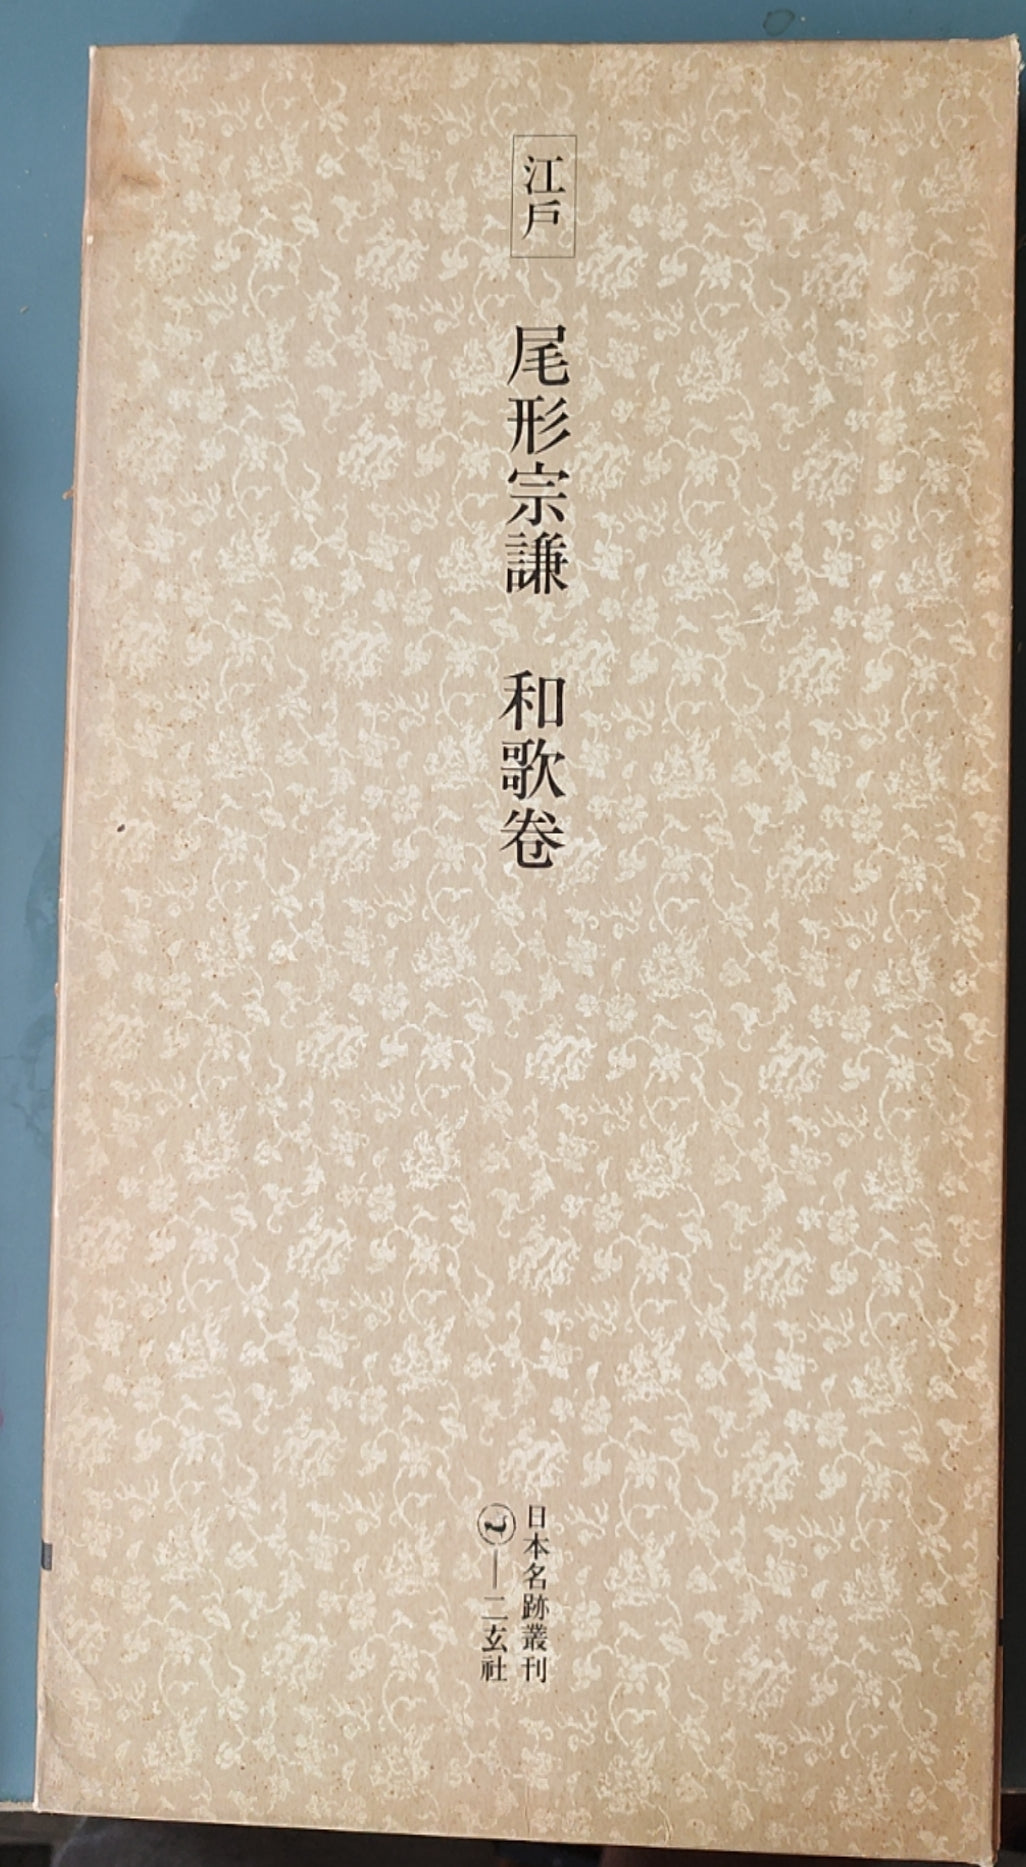 江戶
尾形宗謙 和歌巻
日本名跡叢刊
二玄社